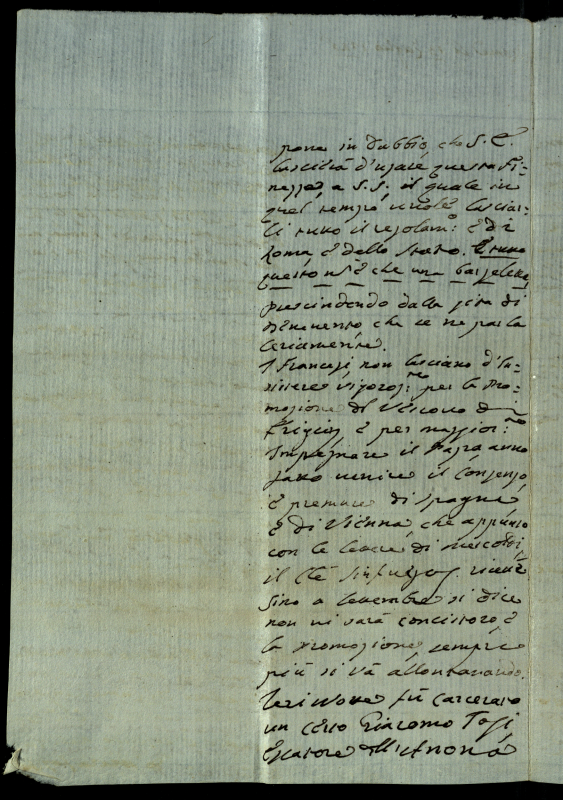 pone in dubbio, che S. E.
lascierà d'usare questa fi-
nezza a S. S. il quale in
quel tempo vuole lasciar-
li tutto il regolam:o e di
Roma, e dello Stato. E tutto
questo n è che una barzelletta,
prescindendo dalla gita di
Benevento, che se ne parla
seriamente.
I Francesi non lasciano d'in-
sistere vigoros:te per la Pro-
mozione del Vescovo di
e per maggior:te
Impegnare il Papa anno
fatto venire il consenso,
e premure di Spagna
e di Vienna, che appunto
con le lettere di mercoldì,
il
Sino a Settembre si dice
non vi sarà concistoro, e
la Promozione sempre
più si và allontanando.
Ieri notte fù carcerato
un certo Giacomo Tosi
Esattore dell'Annona